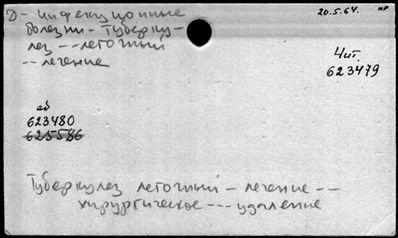 Д - инфекционные 20.5.64. НР
болезни - туберку-
лез -- легочный
-- лечение
Чит.
623479
аб
623480
625586
Туберкулез легочный - лечение --
хирургическое --- удаление